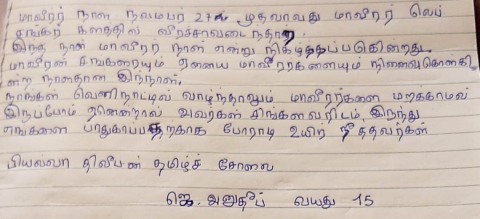 மாவீரர் நாள் நவம்பர் 27ல் முதலாவது மாவீரர் லெப்
சங்கர் களத்தில் வீரச்சாவடைந்தார்
இந்த நாள் மாவீரர் நாள் என்று நிகழ்த்தப்படுகின்றது.
மாவீரன் சங்கரையும் ஏனைய மாவீரர்களையும் நினைவுகொள்கி
ன்ற நாள்தான் இந்நாள்.
நாங்கள் வெளிநாட்டில் வாழ்ந்தாலும் மாவீரர்களை மறக்காமல்
இருப்போம் ஏனென்றால் அவர்கள் சிங்களவரிடம் இருந்து
எங்களை பாதுகாப்பதற்காக போராடி உயிர் நீத்தவர்கள்
பியல்லா திலீபன் தமிழ்ச் சோலை
ஜெ. அனுதீப் வயது 15